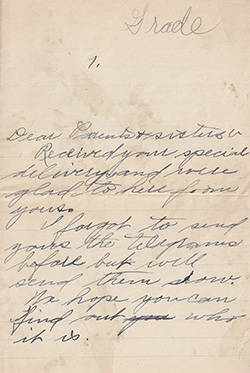 Grade
1.
Dear Parents & sisters
Received your special
delivery and were
glad to hear from
yous.
I forgot to send
yous the telegrams
before but will
send them now.
We hope you can
find out you who
it is.